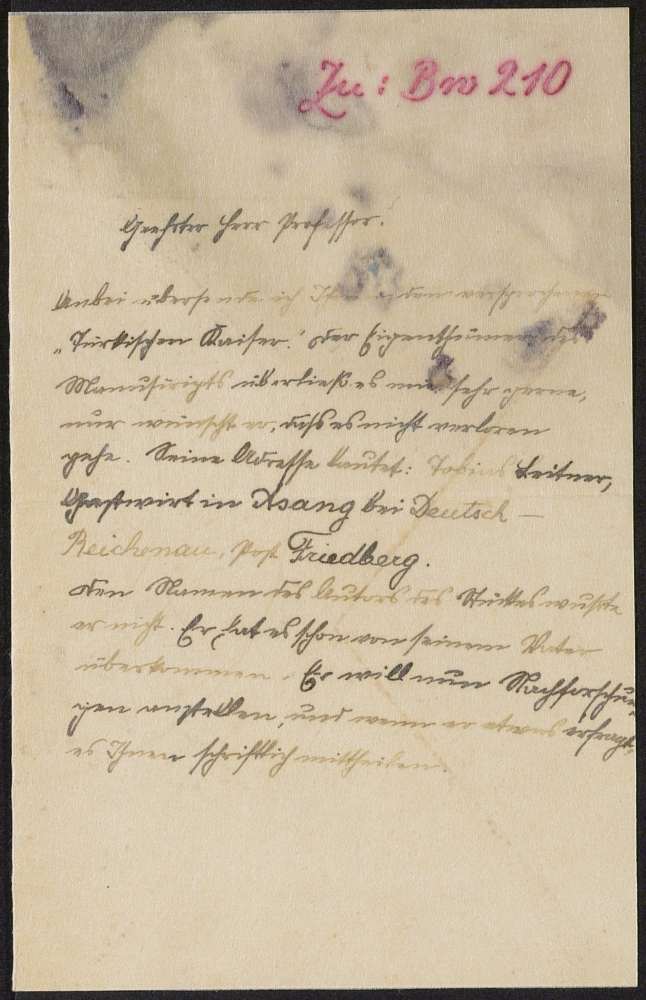 Zu: Bw 210
Geehrter Herr Professor!
Anbei übersende ich Ihnen den versprochenen
„Türkischen Kaiser.“ Der Eigenthümer des
Manuscripts überließ es mir sehr gerne,
nur wünscht er, daß es nicht verloren
gehe. Seine Adresse lautet: Tobias Leitner,
Gastwirt in Asang bei Deutsch –
Reichenau, Post Friedberg.
Den Namen des Autors des Stückes wußte
er nicht. Er hat es schon von seinem Vater
überkommen. Er will nun Nachforschun-
gen anstellen, und wenn er etwas erfragt,
es Ihnen schriftlich mittheilen.